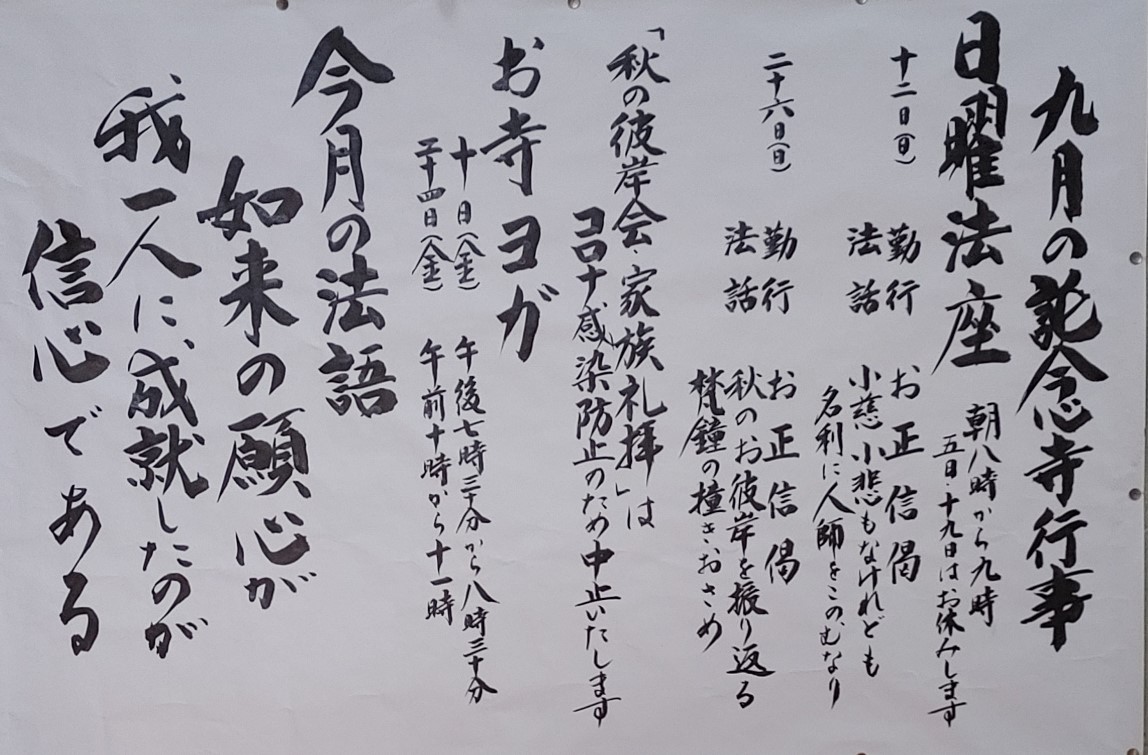 九月の託念寺行事
日曜法座
朝八時から九時
五日・十九日はお休みします
十二日(日)
勤行 お正信偈
法話 小慈小悲もなけれども
名利に人師をこのむなり
二十六日(日)
勤行 お正信偈
法話 秋のお彼岸を振り返る
梵鐘の撞きおさめ
「秋の彼岸会・家族礼拝」は
コロナ感染防止のため中止いたします
お寺ヨガ
十日(金) 午後七時三十分から八時三十分
二十四日(金) 午前十時から十一時
今月の法語
如来の願心が
我一人に成就したのが
信心である